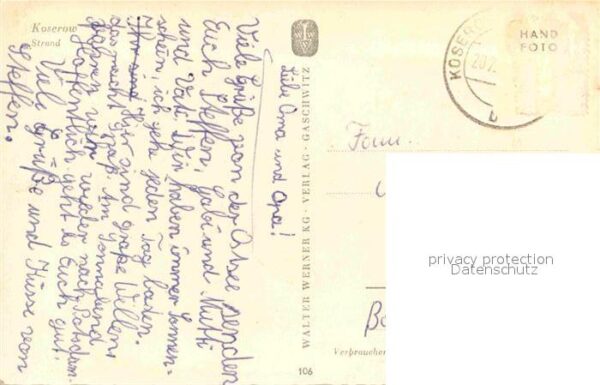 Koserow
Strand
Liebe Oma und Opa!
Viele Grüße von der Ostsee senden
Euch Steffen, Gabi und Mutti
und Vati. Wir haben immer Sonnen-
schein, ich gehe jeden Tag baden.
Hier sind große Wellen,
das macht Spaß. Am Sonnabend
fahren wir wieder nach Potsdam.
Hoffentlich geht es Euch gut.
Viele Grüße und Küsse von
Steffen.
WALTER WERNER KG · VERLAG · GASCHWITZ
106
KOSERO
20.7.
b
HAND
FOTO
Fam.
Verbraucher
privacy protection
Datenschutz